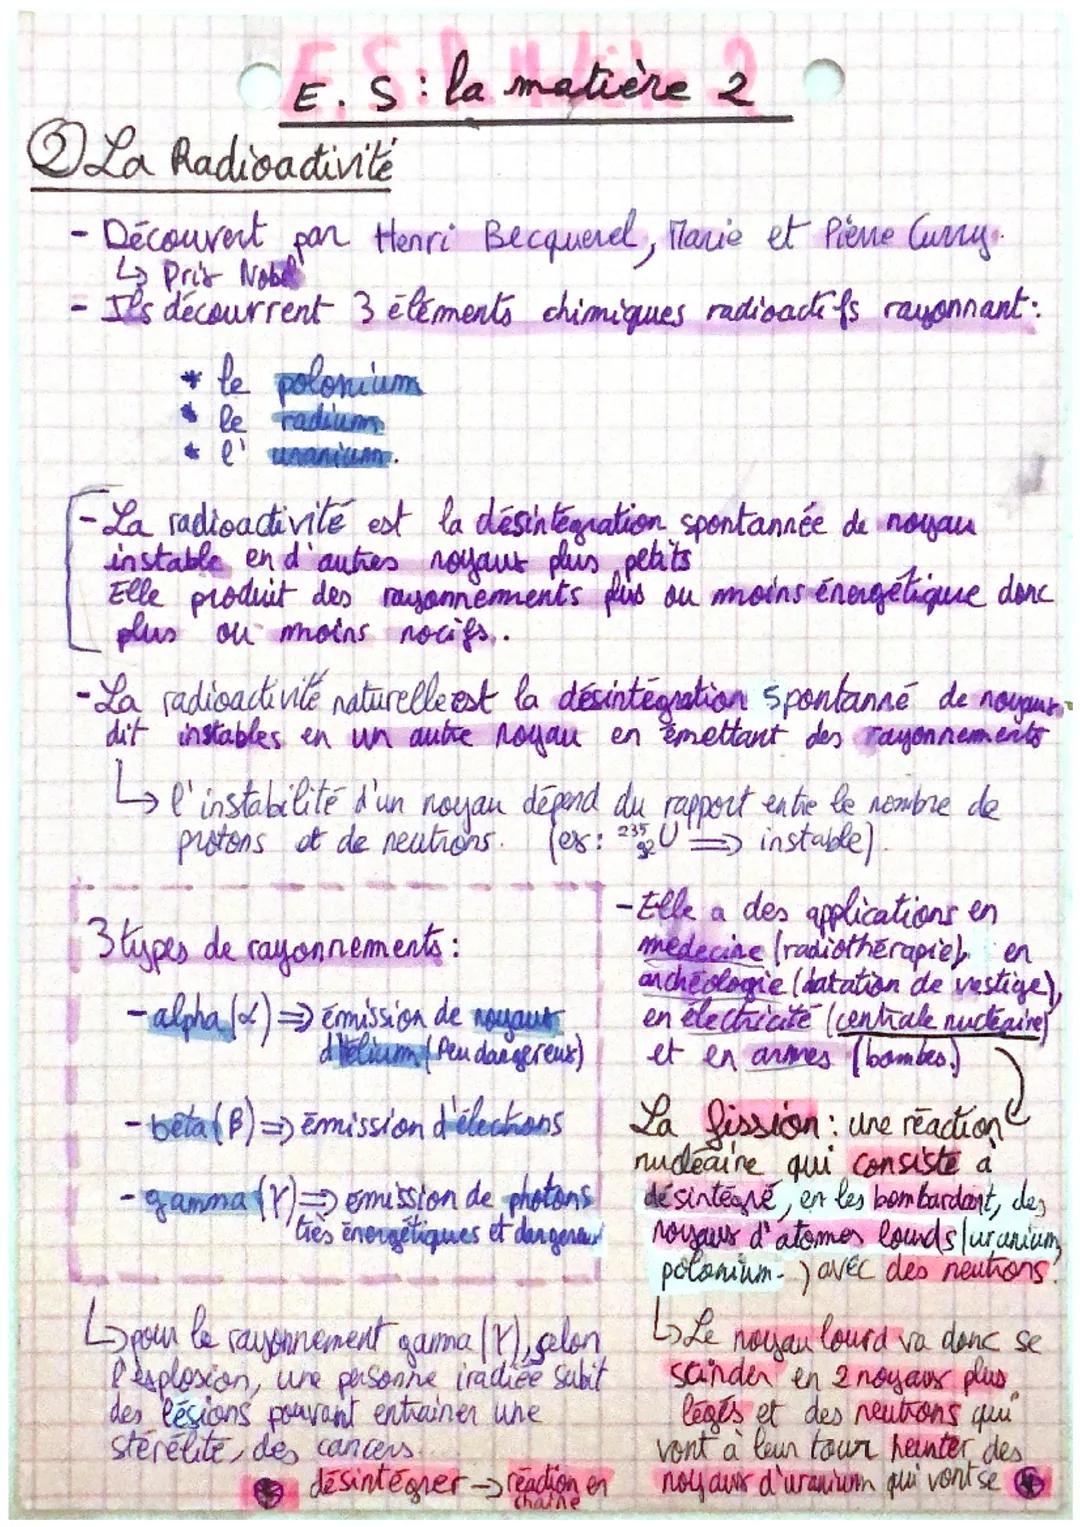 E.S : la matière 2
② La Radioactivité
- Découvert par Henri Becquerel, Marie et Pierre Curry.
↳ Prix Nobel
- Ils découvrent 3 éléments chimiques radioactifs rayonnant :
* le polonium
* le radium
* l'uranium.
- La radioactivité est la désintégration spontannée de noyau
instable en d'autres noyaux plus petits
Elle produit des rayonnements plus ou moins énergétique donc
plus ou moins nocifs.
- La radioactivité naturelle est la désintégration spontanné de noyaux
dit instables en un autre noyau en émettant des rayonnements
↳ l'instabilité d'un noyau dépend du rapport entre le nombre de
protons et de neutrons. (ex : ²³⁵₉₂U ⇒ instable).
3 types de rayonnements :
- alpha (α) ⇒ émission de noyaux
d'hélium (Peu dangereux)
- béta (β) ⇒ émission d'électrons
- gamma (γ) ⇒ émission de photons
très énergétiques et dangereux
↳ pour le rayonnement gamma (γ), selon
l'explosion, une personne iradiée subit
des lésions pouvant entrainer une
stérélité, des cancers...
- Elle a des applications en
médecine (radiothérapie), en
archéologie (datation de vestige),
en électricité (centrale nucléaire)
et en armes (bombes.)
La fission : une réaction
nucléaire qui consiste à
désintégré, en les bombardant, des
noyaux d'atomes lourds (uranium,
polonium..) avec des neutrons.
↳ Le noyau lourd va donc se
scinder en 2 noyaux plus
légés et des neutrons qui
vont à leur tour heurter des
noyaux d'uranium qui vont se ⊛
⊛ désintégrer → réaction en
chaine